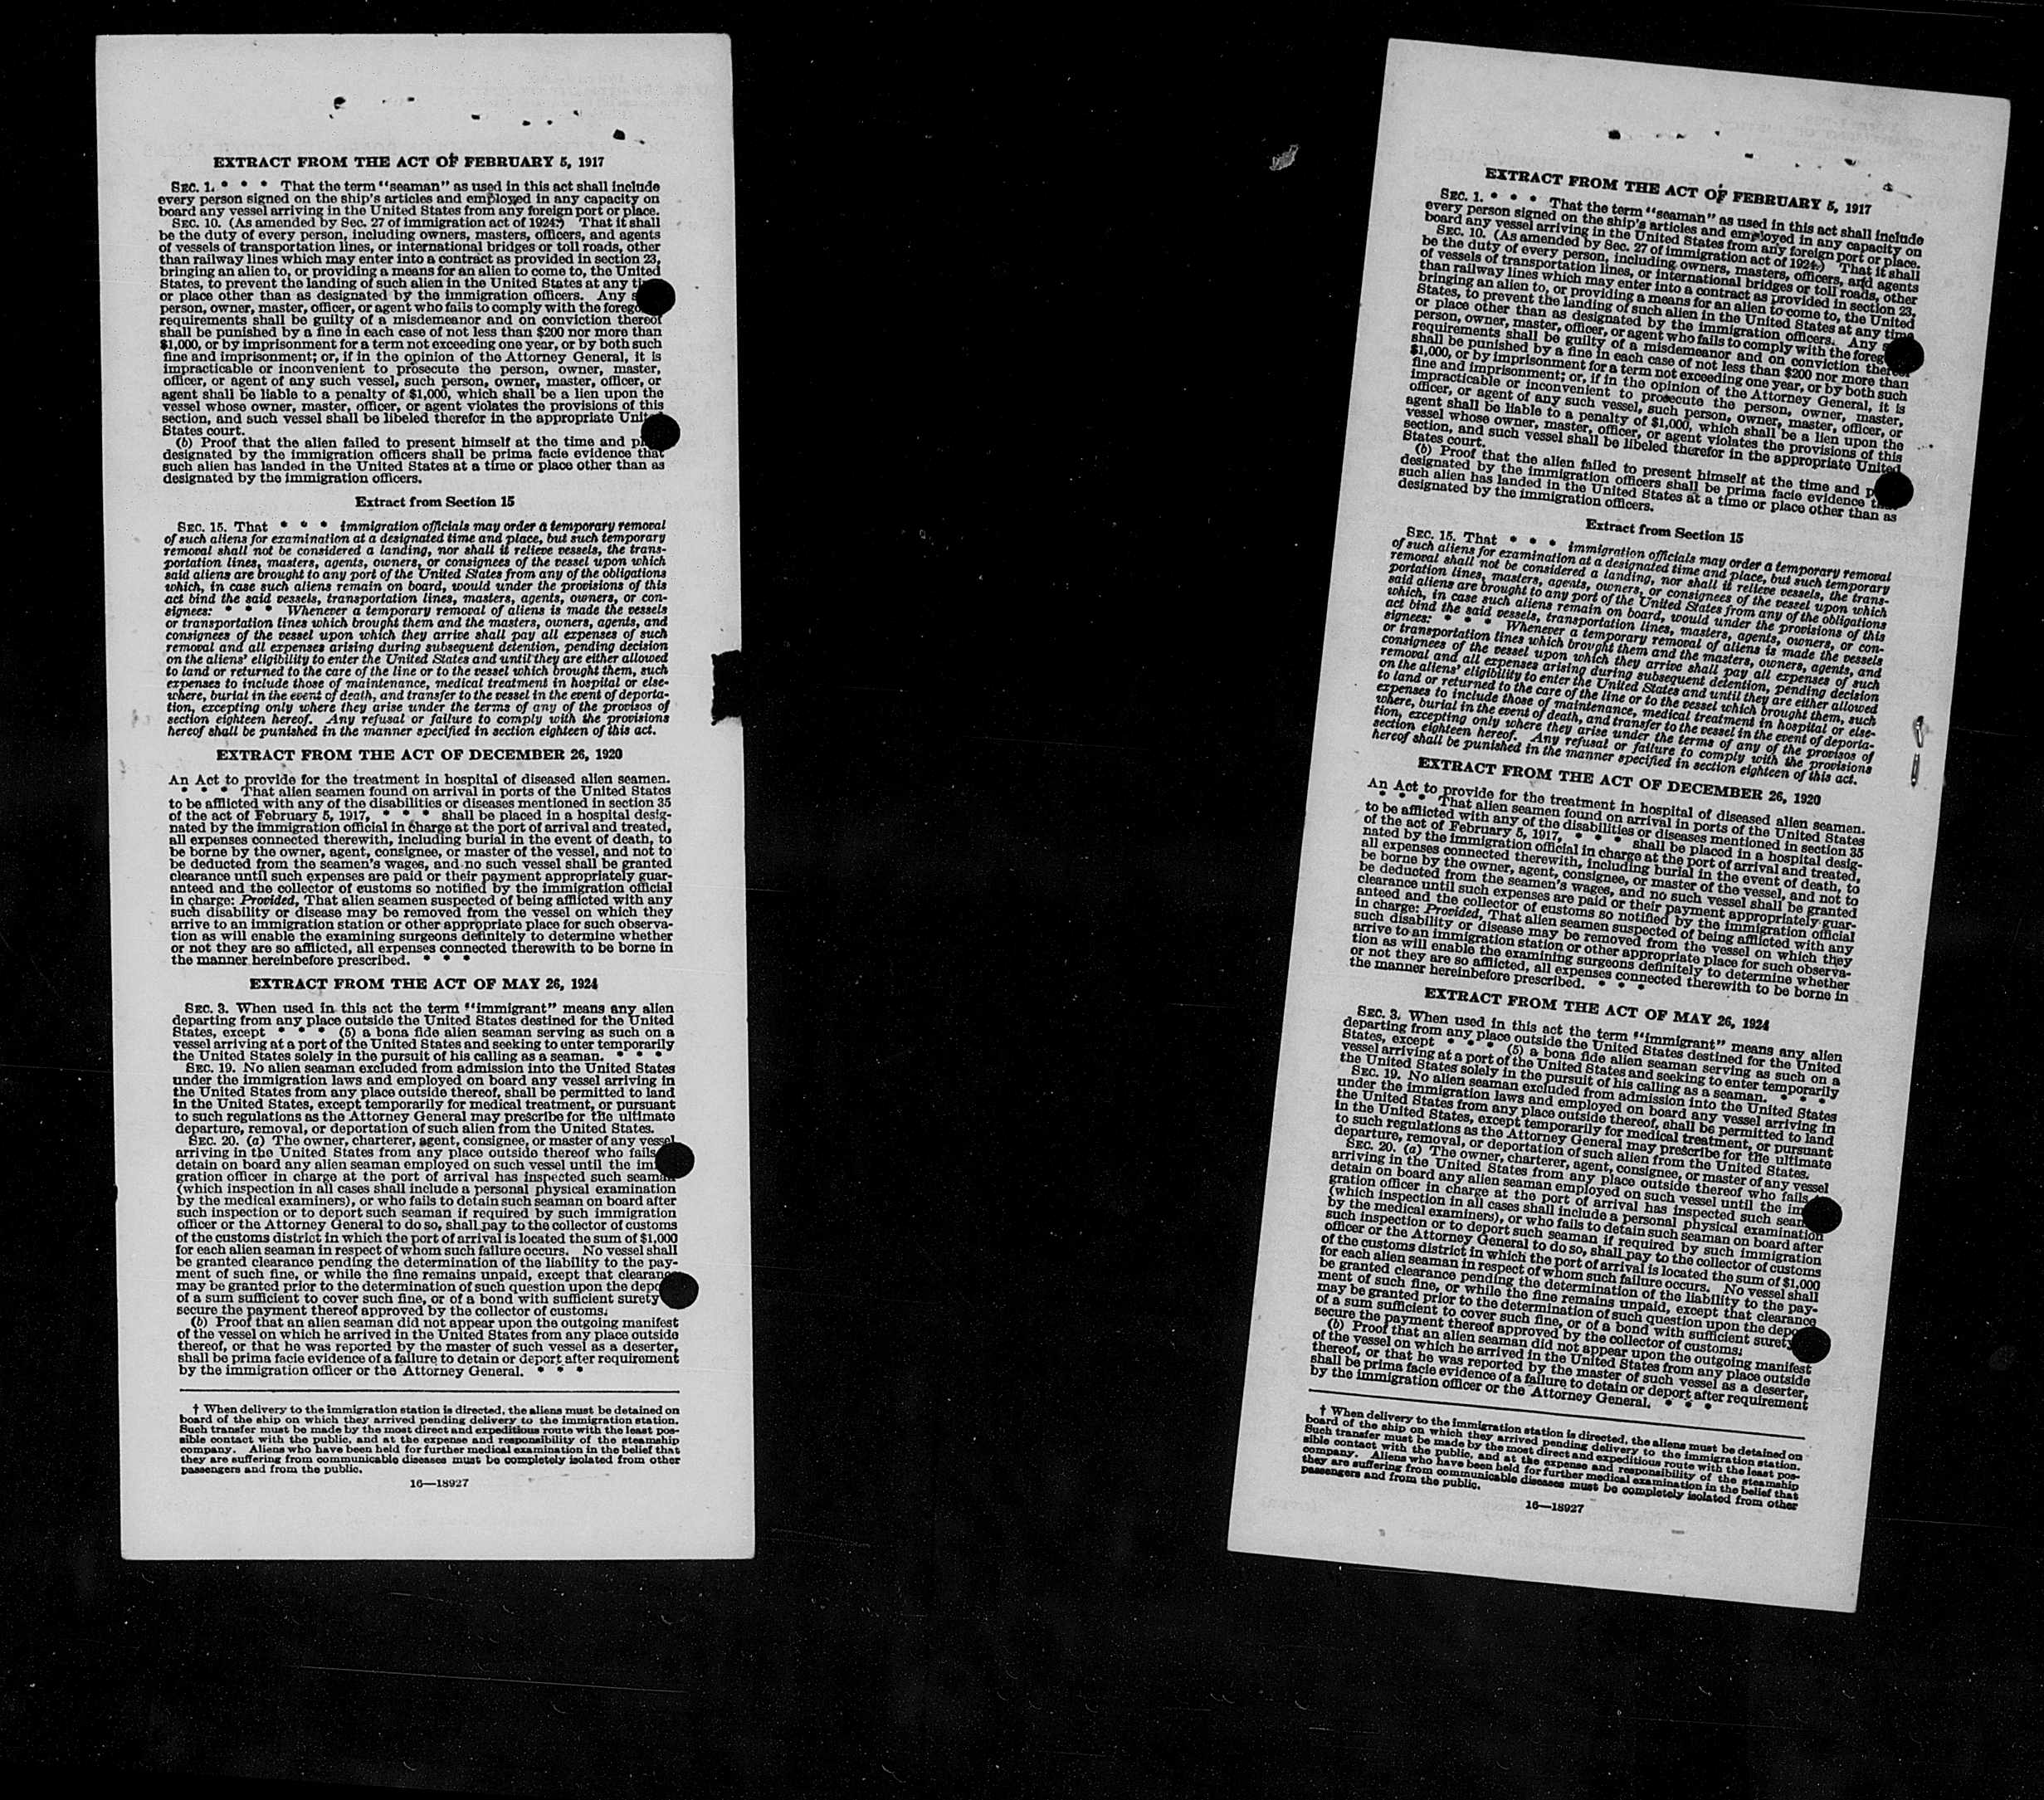 EXTRACT FROM THE ACT OF FEBRUARY 5, 1917
SEC. 1. * * * That the term "seaman" as used in this act shall include
every person signed on the ship's articles and employed in any capacity on
board any vessel arriving in the United States from any foreign port or place.
SEC. 10. (As amended by Sec. 27 of immigration act of 1924.) That it shall
be the duty of every person, including owners, masters, officers, and agents
of vessels of transportation lines, or international bridges or toll roads, other
than railway lines which may enter into a contract as provided in section 23,
bringing an alien to, or providing a means for an alien to come to, the United
States, to prevent the landing of such alien in the United States at any
or place other than as designated by the immigration officers. Any
person, owner, master, officer, or agent who fails to comply with the
requirements shall be guilty of a misdemeanor and on conviction thereof
shall be punished by a fine in each case of not less than $200 nor more than
$1,000, or by imprisonment for a term not exceeding one year, or by both such
fine and imprisonment; or, if in the opinion of the Attorney General, it is
impracticable or inconvenient to prosecute the person, owner, master,
officer, or agent of any such vessel, such person, owner, master, officer, or
agent shall be liable to a penalty of $1,000, which shall be a lien upon the
vessel whose owner, master, officer, or agent violates the provisions of this
section, and such vessel shall be libeled therefor in the appropriate United
States court.
(b) Proof that the alien failed to present himself at the time and
designated by the immigration officers shall be prima facie evidence that
such alien has landed in the United States at a time or place other than as
designated by the immigration officers.
Extract from Section 15
SEC. 15. That * * * immigration officials may order a temporary removal
of such aliens for examination at a designated time and place, but such temporary
removal shall not be considered a landing, nor shall it relieve vessels, the trans-
portation lines, masters, agents, owners, or consignees of the vessel upon which
said aliens are brought to any port of the United States from any of the obligations
which, in case such aliens remain on board, would under the provisions of this
act bind the said vessels, transportation lines, masters, agents, owners, or con-
signees: * * * Whenever a temporary removal of aliens is made the vessels
or transportation lines which brought them and the masters, owners, agents, and
consignees of the vessel upon which they arrive shall pay all expenses of such
removal and all expenses arising during subsequent detention, pending decision
on the aliens' eligibility to enter the United States and until they are either allowed
to land or returned to the care of the line or to the vessel which brought them, such
expenses to include those of maintenance, medical treatment in hospital or else-
where, burial in the event of death, and transfer to the vessel in the event of deporta-
tion, excepting only where they arise under the terms of any of the provisos of
section eighteen hereof. Any refusal or failure to comply with the provisions
hereof shall be punished in the manner specified in section eighteen of this act.
EXTRACT FROM THE ACT OF DECEMBER 26, 1920
An Act to provide for the treatment in hospital of diseased alien seamen.
* * * That alien seamen found on arrival in ports of the United States
to be afflicted with any of the disabilities or diseases mentioned in section 35
of the act of February 5, 1917, * * * shall be placed in a hospital desig-
nated by the immigration official in charge at the port of arrival and treated,
all expenses connected therewith, including burial in the event of death, to
be borne by the owner, agent, consignee, or master of the vessel, and not to
be deducted from the seamen's wages, and no such vessel shall be granted
clearance until such expenses are paid or their payment appropriately guar-
anteed and the collector of customs so notified by the immigration official
in charge: Provided, That alien seamen suspected of being afflicted with any
such disability or disease may be removed from the vessel on which they
arrive to an immigration station or other appropriate place for such observa-
tion as will enable the examining surgeons definitely to determine whether
or not they are so afflicted, all expenses connected therewith to be borne in
the manner hereinbefore prescribed. * * *
EXTRACT FROM THE ACT OF MAY 26, 1924
SEC. 3. When used in this act the term "immigrant" means any alien
departing from any place outside the United States destined for the United
States, except * * * (5) a bona fide alien seaman serving as such on a
vessel arriving at a port of the United States and seeking to enter temporarily
the United States solely in the pursuit of his calling as a seaman. * * *
SEC. 19. No alien seaman excluded from admission into the United States
under the immigration laws and employed on board any vessel arriving in
the United States from any place outside thereof, shall be permitted to land
in the United States, except temporarily for medical treatment, or pursuant
to such regulations as the Attorney General may prescribe for the ultimate
departure, removal, or deportation of such alien from the United States.
SEC. 20. (a) The owner, charterer, agent, consignee, or master of any vessel
arriving in the United States from any place outside thereof who fails
detain on board any alien seaman employed on such vessel until the
gration officer in charge at the port of arrival has inspected such seaman
(which inspection in all cases shall include a personal physical examination
by the medical examiners), or who fails to detain such seaman on board after
such inspection or to deport such seaman if required by such immigration
officer or the Attorney General to do so, shall pay to the collector of customs
of the customs district in which the port of arrival is located the sum of $1,000
for each alien seaman in respect of whom such failure occurs. No vessel shall
be granted clearance pending the determination of the liability to the pay-
ment of such fine, or while the fine remains unpaid, except that clearance
may be granted prior to the determination of such question upon the
of a sum sufficient to cover such fine, or of a bond with sufficient surety
secure the payment thereof approved by the collector of customs.
(b) Proof that an alien seaman did not appear upon the outgoing manifest
of the vessel on which he arrived in the United States from any place outside
thereof, or that he was reported by the master of such vessel as a deserter,
shall be prima facie evidence of a failure to detain or deport after requirement
by the immigration officer or the Attorney General. * * *
† When delivery to the immigration station is directed, the aliens must be detained on
board of the ship on which they arrived pending delivery to the immigration station.
Such transfer must be made by the most direct and expeditious route with the least pos-
sible contact with the public, and at the expense and responsibility of the steamship
company. Aliens who have been held for further medical examination in the belief that
they are suffering from communicable diseases must be completely isolated from other
passengers and from the public.
16—18927
EXTRACT FROM THE ACT OF FEBRUARY 5, 1917
SEC. 1. * * * That the term "seaman" as used in this act shall include
every person signed on the ship's articles and employed in any capacity on
board any vessel arriving in the United States from any foreign port or place.
SEC. 10. (As amended by Sec. 27 of immigration act of 1924.) That it shall
be the duty of every person, including owners, masters, officers, and agents
of vessels of transportation lines, or international bridges or toll roads, other
than railway lines which may enter into a contract as provided in section 23,
bringing an alien to, or providing a means for an alien to come to, the United
States, to prevent the landing of such alien in the United States at any time
or place other than as designated by the immigration officers. Any
person, owner, master, officer, or agent who fails to comply with the
requirements shall be guilty of a misdemeanor and on conviction thereof
shall be punished by a fine in each case of not less than $200 nor more than
$1,000, or by imprisonment for a term not exceeding one year, or by both such
fine and imprisonment; or, if in the opinion of the Attorney General, it is
impracticable or inconvenient to prosecute the person, owner, master,
officer, or agent of any such vessel, such person, owner, master, officer, or
agent shall be liable to a penalty of $1,000, which shall be a lien upon the
vessel whose owner, master, officer, or agent violates the provisions of this
section, and such vessel shall be libeled therefor in the appropriate United
States court.
(b) Proof that the alien failed to present himself at the time and
designated by the immigration officers shall be prima facie evidence that
such alien has landed in the United States at a time or place other than as
designated by the immigration officers.
Extract from Section 15
SEC. 15. That * * * immigration officials may order a temporary removal
of such aliens for examination at a designated time and place, but such temporary
removal shall not be considered a landing, nor shall it relieve vessels, the trans-
portation lines, masters, agents, owners, or consignees of the vessel upon which
said aliens are brought to any port of the United States from any of the obligations
which, in case such aliens remain on board, would under the provisions of this
act bind the said vessels, transportation lines, masters, agents, owners, or con-
signees: * * * Whenever a temporary removal of aliens is made the vessels
or transportation lines which brought them and the masters, owners, agents, and
consignees of the vessel upon which they arrive shall pay all expenses of such
removal and all expenses arising during subsequent detention, pending decision
on the aliens' eligibility to enter the United States and until they are either allowed
to land or returned to the care of the line or to the vessel which brought them, such
expenses to include those of maintenance, medical treatment in hospital or else-
where, burial in the event of death, and transfer to the vessel in the event of deporta-
tion, excepting only where they arise under the terms of any of the provisos of
section eighteen hereof. Any refusal or failure to comply with the provisions
hereof shall be punished in the manner specified in section eighteen of this act.
EXTRACT FROM THE ACT OF DECEMBER 26, 1920
An Act to provide for the treatment in hospital of diseased alien seamen.
* * * That alien seamen found on arrival in ports of the United States
to be afflicted with any of the disabilities or diseases mentioned in section 35
of the act of February 5, 1917, * * * shall be placed in a hospital desig-
nated by the immigration official in charge at the port of arrival and treated,
all expenses connected therewith, including burial in the event of death, to
be borne by the owner, agent, consignee, or master of the vessel, and not to
be deducted from the seamen's wages, and no such vessel shall be granted
clearance until such expenses are paid or their payment appropriately guar-
anteed and the collector of customs so notified by the immigration official
in charge: Provided, That alien seamen suspected of being afflicted with any
such disability or disease may be removed from the vessel on which they
arrive to an immigration station or other appropriate place for such observa-
tion as will enable the examining surgeons definitely to determine whether
or not they are so afflicted, all expenses connected therewith to be borne in
the manner hereinbefore prescribed. * * *
EXTRACT FROM THE ACT OF MAY 26, 1924
SEC. 3. When used in this act the term "immigrant" means any alien
departing from any place outside the United States destined for the United
States, except * * * (5) a bona fide alien seaman serving as such on a
vessel arriving at a port of the United States and seeking to enter temporarily
the United States solely in the pursuit of his calling as a seaman. * * *
SEC. 19. No alien seaman excluded from admission into the United States
under the immigration laws and employed on board any vessel arriving in
the United States from any place outside thereof, shall be permitted to land
in the United States, except temporarily for medical treatment, or pursuant
to such regulations as the Attorney General may prescribe for the ultimate
departure, removal, or deportation of such alien from the United States.
SEC. 20. (a) The owner, charterer, agent, consignee, or master of any vessel
arriving in the United States from any place outside thereof who fails
detain on board any alien seaman employed on such vessel until the
gration officer in charge at the port of arrival has inspected such
(which inspection in all cases shall include a personal physical examination
by the medical examiners), or who fails to detain such seaman on board after
such inspection or to deport such seaman if required by such immigration
officer or the Attorney General to do so, shall pay to the collector of customs
of the customs district in which the port of arrival is located the sum of $1,000
for each alien seaman in respect of whom such failure occurs. No vessel shall
be granted clearance pending the determination of the liability to the pay-
ment of such fine, or while the fine remains unpaid, except that clearance
may be granted prior to the determination of such question upon the
of a sum sufficient to cover such fine, or of a bond with sufficient surety
secure the payment thereof approved by the collector of customs.
(b) Proof that an alien seaman did not appear upon the outgoing manifest
of the vessel on which he arrived in the United States from any place outside
thereof, or that he was reported by the master of such vessel as a deserter,
shall be prima facie evidence of a failure to detain or deport after requirement
by the immigration officer or the Attorney General. * * *
† When delivery to the immigration station is directed, the aliens must be detained on
board of the ship on which they arrived pending delivery to the immigration station.
Such transfer must be made by the most direct and expeditious route with the least pos-
sible contact with the public, and at the expense and responsibility of the steamship
company. Aliens who have been held for further medical examination in the belief that
they are suffering from communicable diseases must be completely isolated from other
passengers and from the public.
16—18927